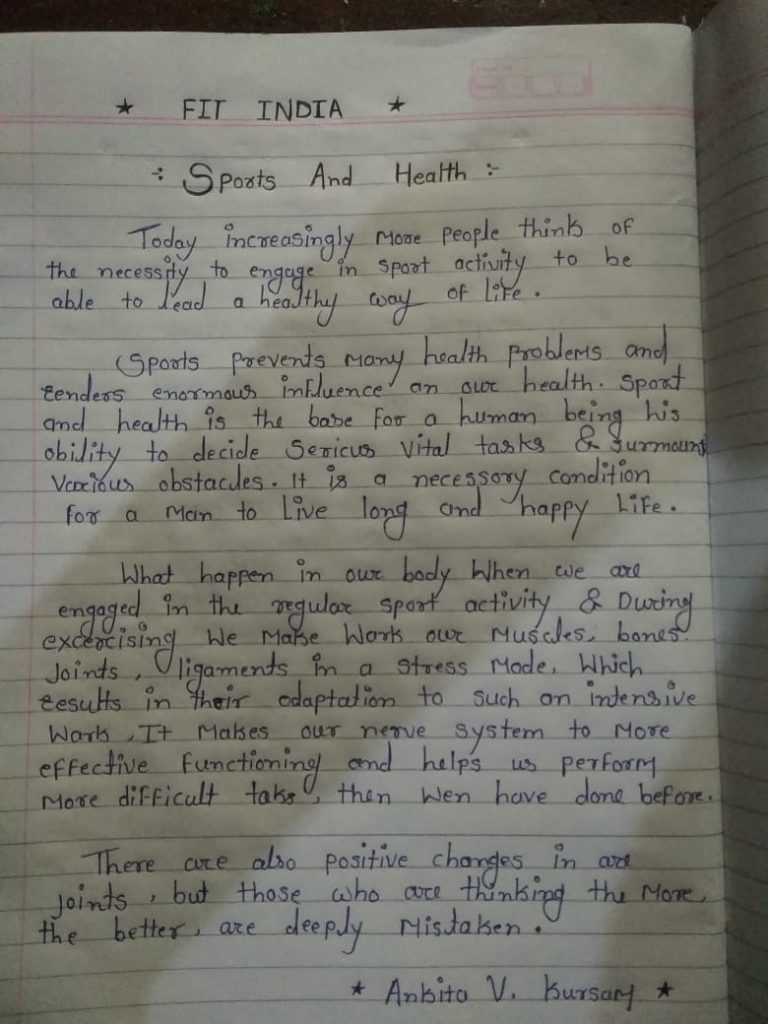 * FIT INDIA *
Sports And Health
Today increasingly more people think of
the necessity to engage in sport activity to be
able to lead a healthy way of life.
Sports prevents many health problems and
renders enormous influence an our health. Sport
and health is the base for a human being his
obility to decide Sericus vital tasks & surmount
Various obstacles. It is a necessory condition
for a man to live long and happy life.
What happen in our body When we are
engaged in the regular sport activity & During
excercising We Make Work our Muscles, bones
Joints, ligaments in a stress mode, Which
results in their adaptation to such an intensive
Work, It Makes our nerve system to More
effective functioning and helps us perform
More difficult taks, then Wen have done before.
There are also positive changes in are
joints, but those who are thinking the More,
the better, are deeply Mistaken.
* Ankita V. Kursam *